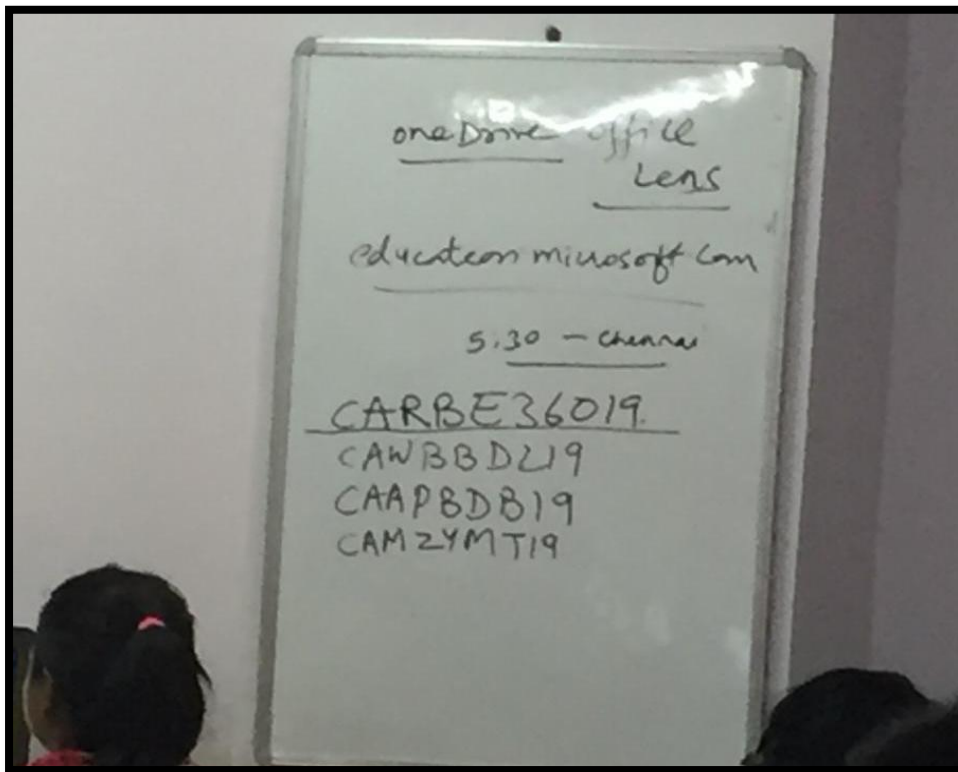 oneDrive office
Lens
education microsoft com
5.30 - Chennai
CARBE36019.
CAWBBDL19
CAAPBDB19
CAMZYMT19